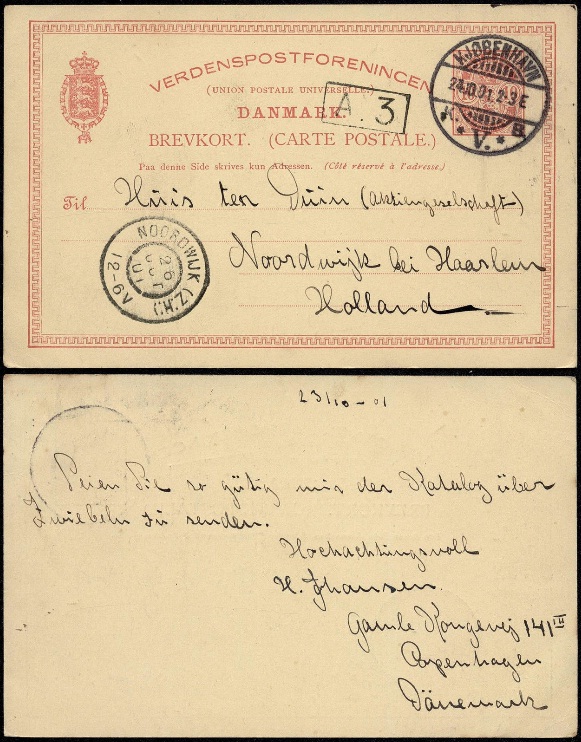 VERDENSPOSTFORENINGEN
(UNION POSTALE UNIVERSELLE)
DANMARK.
BREVKORT. (CARTE POSTALE.)
Paa denne Side skrives kun Adressen. (Côté réservé à l'adresse.)
A. 3
KJØBENHAVN
24.10.01. 2-3 E
K. B.
* V. *
Til Huis ten Duin (Aktiengeselschaft)
Noordwijk bei Haarlem
Holland
NOORDWIJK (Z.H.)
26
OCT
01
12-9V
23/10-01
Seien Sie so gütig mir der Katalog über
Zwiebeln zu senden.
Hochachtungsvoll
H. Johansen.
Gamle Kongevej 141 III
Copenhagen
Dänemark